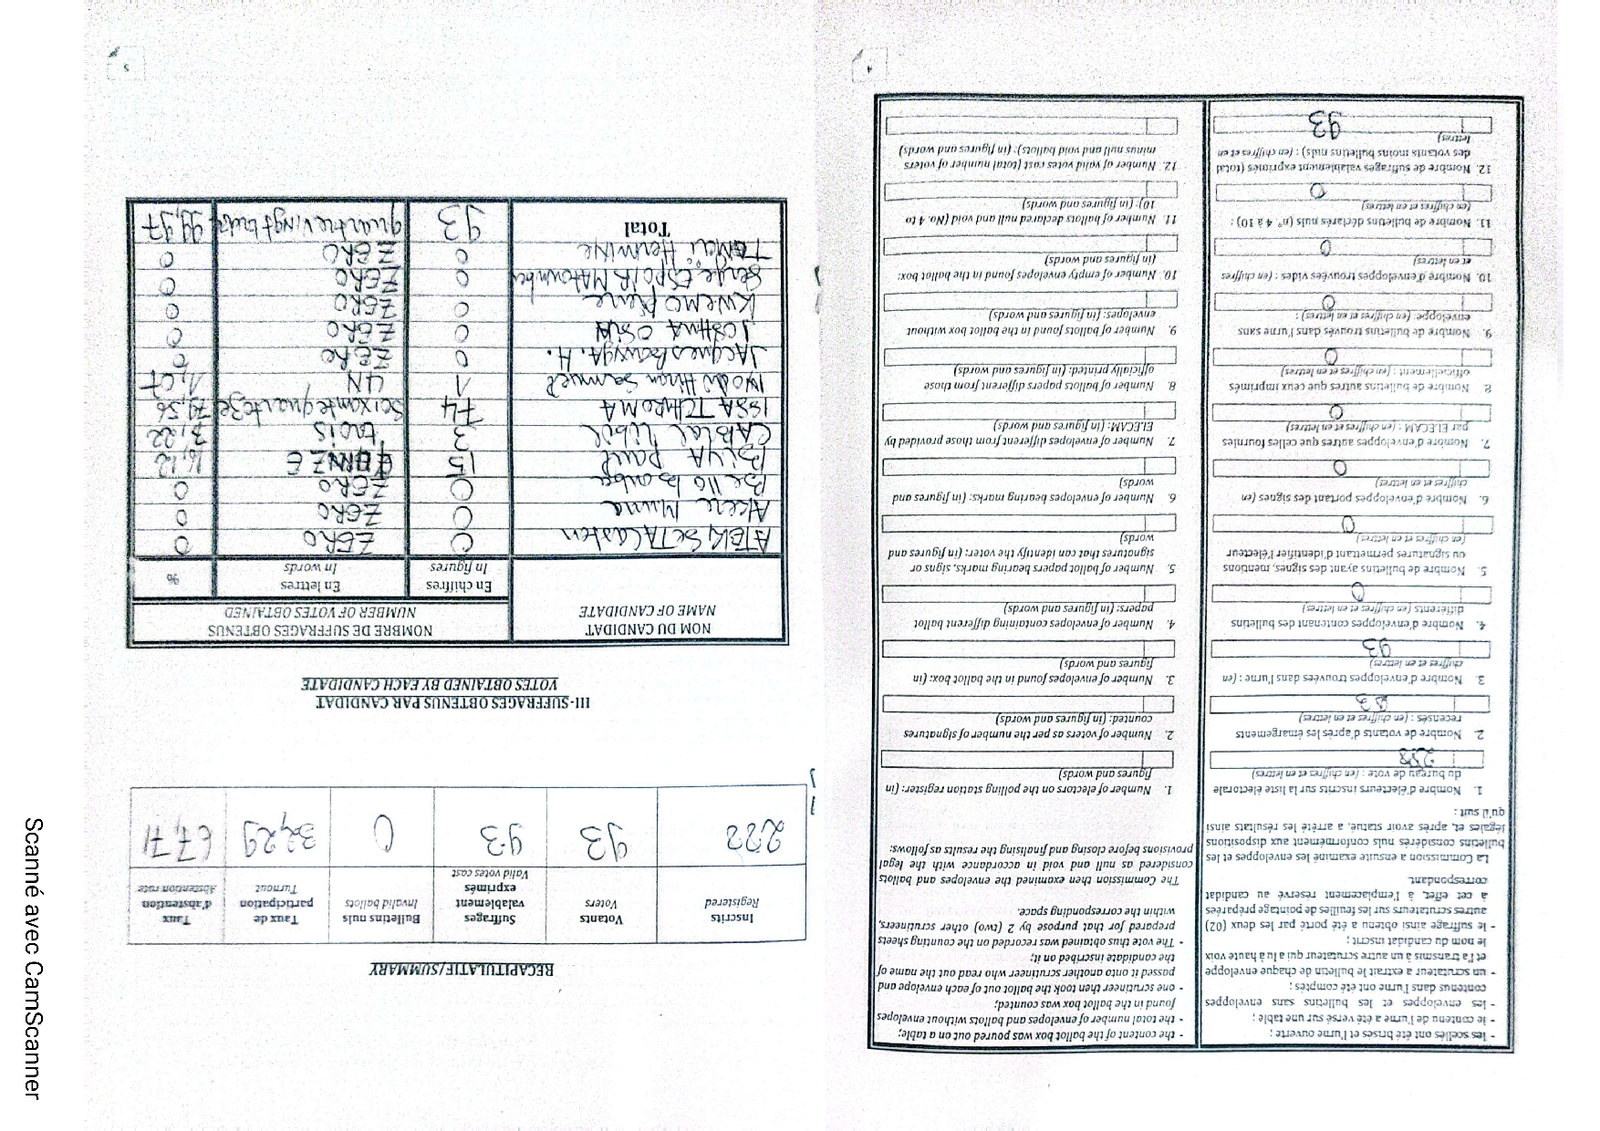 4
- les scellés ont été brisés et l'urne ouverte ;
- le contenu de l'urne a été versé sur une table ;
- les enveloppes et les bulletins sans enveloppes
contenus dans l'urne ont été comptés ;
- un scrutateur a extrait le bulletin de chaque enveloppe
et l'a transmis à un autre scrutateur qui a lu à haute voix
le nom du candidat inscrit ;
- le suffrage ainsi obtenu a été porté par les deux (02)
autres scrutateurs sur les feuilles de pointage préparées
à cet effet, à l'emplacement réservé au candidat
correspondant.
La Commission a ensuite examiné les enveloppes et les
bulletins considérés nuls conformément aux dispositions
légales et, après avoir statué, a arrêté les résultats ainsi
qu'il suit :
1. Nombre d'électeurs inscrits sur la liste électorale
du bureau de vote : (en chiffres et en lettres)
288
2. Nombre de votants d'après les émargements
recensés : (en chiffres et en lettres)
93
3. Nombre d'enveloppes trouvées dans l'urne : (en
chiffres et en lettres)
93
4. Nombre d'enveloppes contenant des bulletins
différents (en chiffres et en lettres)
0
5. Nombre de bulletins ayant des signes, mentions
ou signatures permettant d'identifier l'électeur
(en chiffres et en lettres)
0
6. Nombre d'enveloppes portant des signes (en
chiffres et en lettres)
0
7. Nombre d'enveloppes autres que celles fournies
par ELECAM : (en chiffres et en lettres)
0
8. Nombre de bulletins autres que ceux imprimés
officiellement : (en chiffres et en lettres)
0
9. Nombre de bulletins trouvés dans l'urne sans
enveloppe: (en chiffres et en lettres) :
0
10. Nombre d'enveloppes trouvées vides : (en chiffres
et en lettres)
0
11. Nombre de bulletins déclarés nuls (n° 4 à 10) :
(en chiffres et en lettres)
0
12. Nombre de suffrages valablement exprimés (total
des votants moins bulletins nuls) : (en chiffres et en
lettres)
93
- the content of the ballot box was poured out on a table;
- the total number of envelopes and ballots without envelopes
found in the ballot box was counted;
- one scrutineer then took the ballot out of each envelope and
passed it onto another scrutineer who read out the name of
the candidate inscribed on it;
- The vote thus obtained was recorded on the counting sheets
prepared for that purpose by 2 (two) other scrutineers,
within the corresponding space.
The Commission then examined the envelopes and ballots
considered as null and void in accordance with the legal
provisions before closing and finalising the results as follows:
1. Number of electors on the polling station register: (in
figures and words)
2. Number of voters as per the number of signatures
counted: (in figures and words)
3. Number of envelopes found in the ballot box: (in
figures and words)
4. Number of envelopes containing different ballot
papers: (in figures and words)
5. Number of ballot papers bearing marks, signs or
signatures that can identify the voter: (in figures and
words)
6. Number of envelopes bearing marks: (in figures and
words)
7. Number of envelopes different from those provided by
ELECAM: (in figures and words)
8. Number of ballots papers different from those
officially printed: (in figures and words)
9. Number of ballots found in the ballot box without
envelopes: (in figures and words)
10. Number of empty envelopes found in the ballot box:
(in figures and words)
11. Number of ballots declared null and void (No. 4 to
10): (in figures and words)
12. Number of valid votes cast (total number of voters
minus null and void ballots): (in figures and words)
5
RECAPITULATIF/SUMMARY
Inscrits Registered | Votants Voters | Suffrages valablement exprimés Valid votes cast | Bulletins nuls Invalid ballots | Taux de participation Turnout | Taux d'abstention Abstention rate
288 | 93 | 93 | 0 | 32,29 | 67,71
III- SUFFRAGES OBTENUS PAR CANDIDAT
VOTES OBTAINED BY EACH CANDIDATE
NOM DU CANDIDAT
NAME OF CANDIDATE
NOMBRE DE SUFFRAGES OBTENUS
NUMBER OF VOTES OBTAINED
En chiffres In figures | En lettres In words | %
ATEKI SETA Caxton 0 ZERO 0
Ateere Mune 0 ZERO 0
Bello Bouba 0 ZERO 0
BIYA Paul 15 QUINZE 16,12
CABRAL Libii 3 trois 3,22
ISSA TCHIROMA 74 Soixante quatorze 79,56
IYODI Hiram Samuel 1 UN 1,07
JACQUES Bougha. H. 0 ZERO 0
JOSHUA OSIH 0 ZERO 0
KWEMO Pierre 0 ZERO 0
Serge ESPOIR MATOMBA 0 ZERO 0
TOMAI Hermine 0 ZERO 0
Total 93 quatre vingt treize 99,97
Scanné avec CamScanner